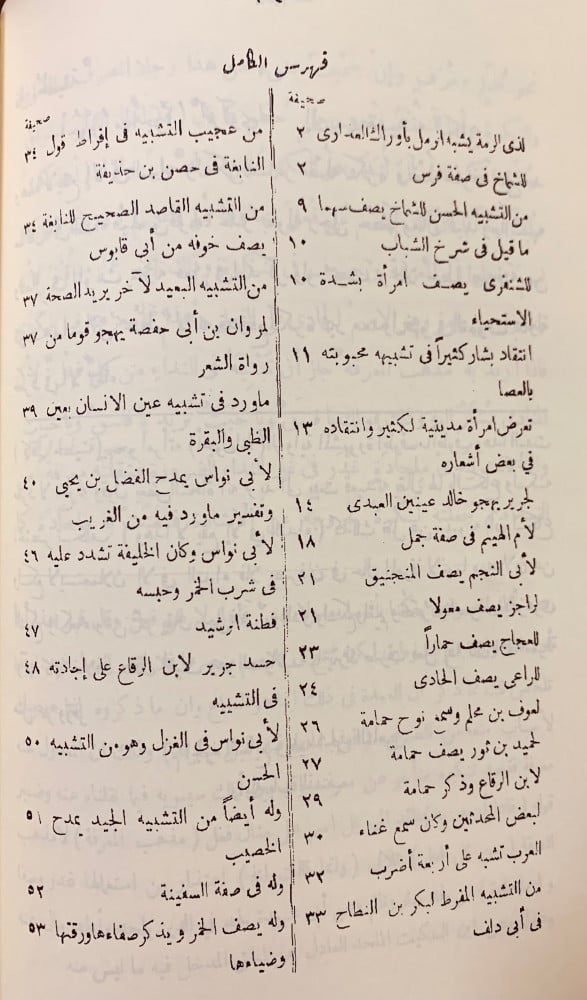 فهرس الكامل
صحيفة
لذى الرمة يشبه الرمل بأوراك العذارى ٢
للشماخ فى صفة فرس ٢
من التشبيه الحسن للشماخ يصف سهما ٩
ما قيل فى شرخ الشباب ١٠
للشنفرى يصف امرأة بشدة ١٠
الاستحياء
انتقاد بشار كثيراً فى تشبيهه محبوبته ١١
بالعصا
تعرض امرأة مدينية لكثير وانتقاده ١٣
فى بعض أشعاره
لجرير يهجو خالد عينين العبدى ١٤
لأم الهيثم فى صفة جمل ١٨
لأبى النجم يصف المنجنيق ٢١
لراجز يصف معولا ٢١
للعجاج يصف حماراً ٢٣
للراعى يصف الحادى ٢٤
لعوف بن محلم وسمع نوح حمامة ٢٦
لحميد بن ثور يصف حمامة ٢٧
لابن الرقاع وذكر حمامة ٢٩
لبعض المحدثين وكان سمع غناء ٣٠
العرب تشبه على أربعة أضرب ٣٢
من التشبيه المفرط لبكر بن النطاح ٣٣
فى أبى دلف
صحيفة
من عجيب التشبيه فى إفراط قول ٣٤
النابغة فى حصن بن حذيفة
من التشبيه القاصد الصحيح للنابغة ٣٤
يصف خوفه من أبى قابوس
من التشبيه البعيد لآخر يريد الصحة ٣٧
لمروان بن أبى حفصة يهجو قوما من ٣٧
رواة الشعر
ماورد فى تشبيه عين الانسان بعين ٣٩
الظبى والبقرة
لأبى نواس يمدح الفضل بن يحيى ٤٠
وتفسير ماورد فيه من الغريب
لأبى نواس وكان الخليفة تشدد عليه ٤٦
فى شرب الخمر وحبسه
فطنة الرشيد ٤٧
حسد جرير لابن الرقاع على إجادته ٤٨
فى التشبيه
لأبى نواس فى الغزل وهو من التشبيه ٥٠
الحسن
وله أيضاً من التشبيه الجيد يمدح ٥١
الخصيب
وله فى صفة السفينة ٥٢
وله يصف الخمر ويذكر صفاءها ورقتها ٥٣
وضياءها